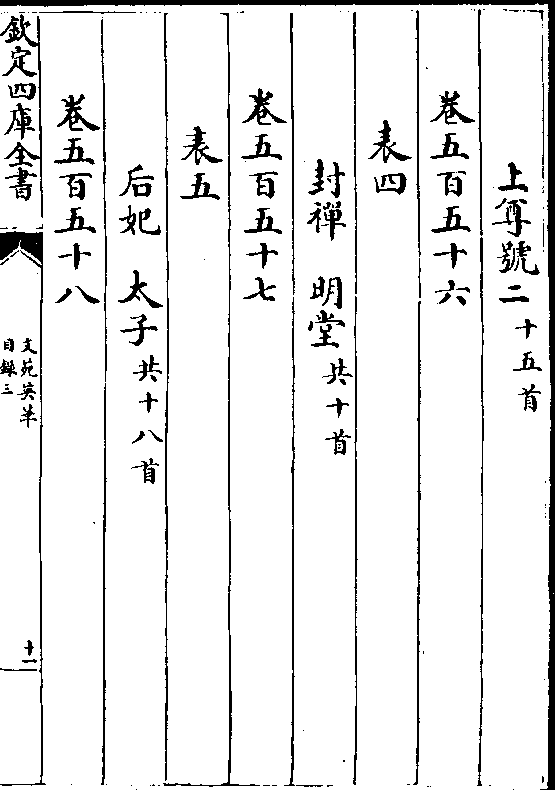 上尊號二十五首
卷五百五十六
表四
封禪 明堂共十首
卷五百五十七
表五
后妃 太子共十八首
卷五百五十八
欽定四庫全書
文苑英華
目錄三
十一